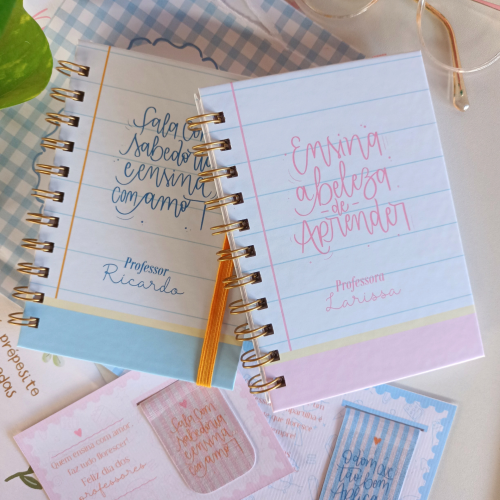 Fala com
sabedo
e ensina
com amo
Professor
Ricardo
Ensina
a beleza
de
Aprender
Professora
Larissa
propósito
Quem ensina com amor,
faz tudo florescer!
Feliz dia dos
professores
Fala com
sabedoria
e ensina
com amor!
O dom que